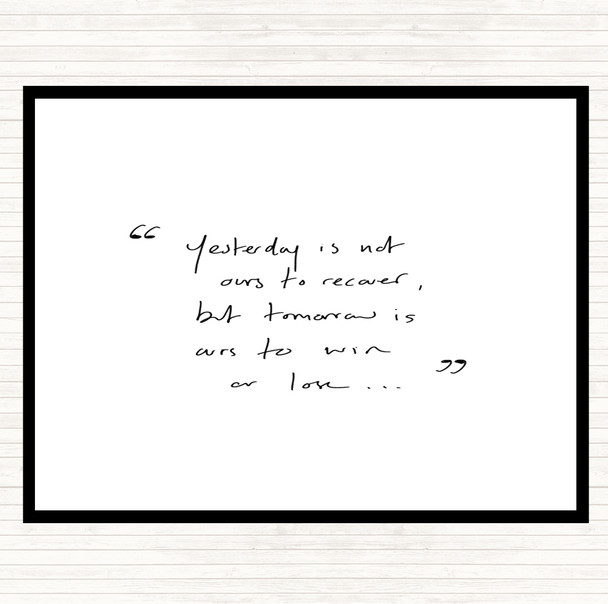 “ Yesterday is not
ours to recover,
but tomorrow is
ours to win
or lose ... ”